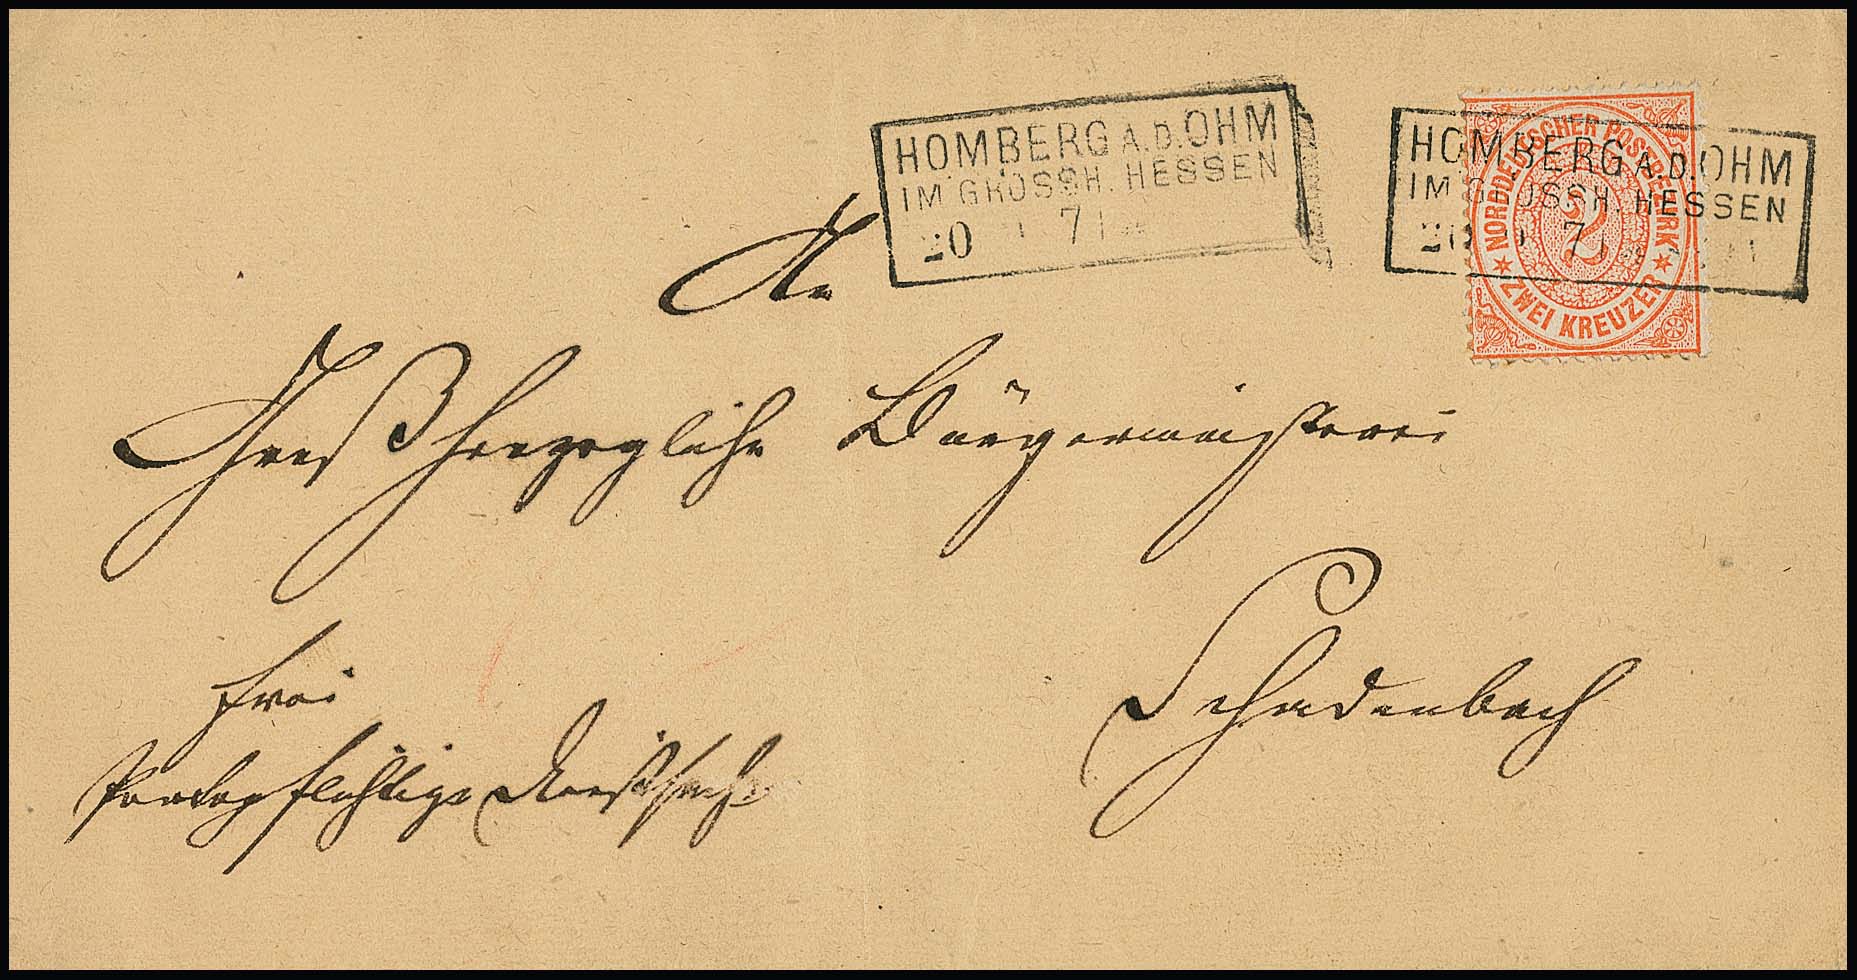 HOMBERG A.D. OHM
IM GROSSH. HESSEN
20 71
HOMBERG A.D. OHM
IM GROSSH. HESSEN
20 71
NORDDEUTSCHER POSTBEZIRK
2
ZWEI KREUZER
An
Großherzogliche Bürgermeisterei
Schadenbach
frei
Portopflichtige Dienstsache